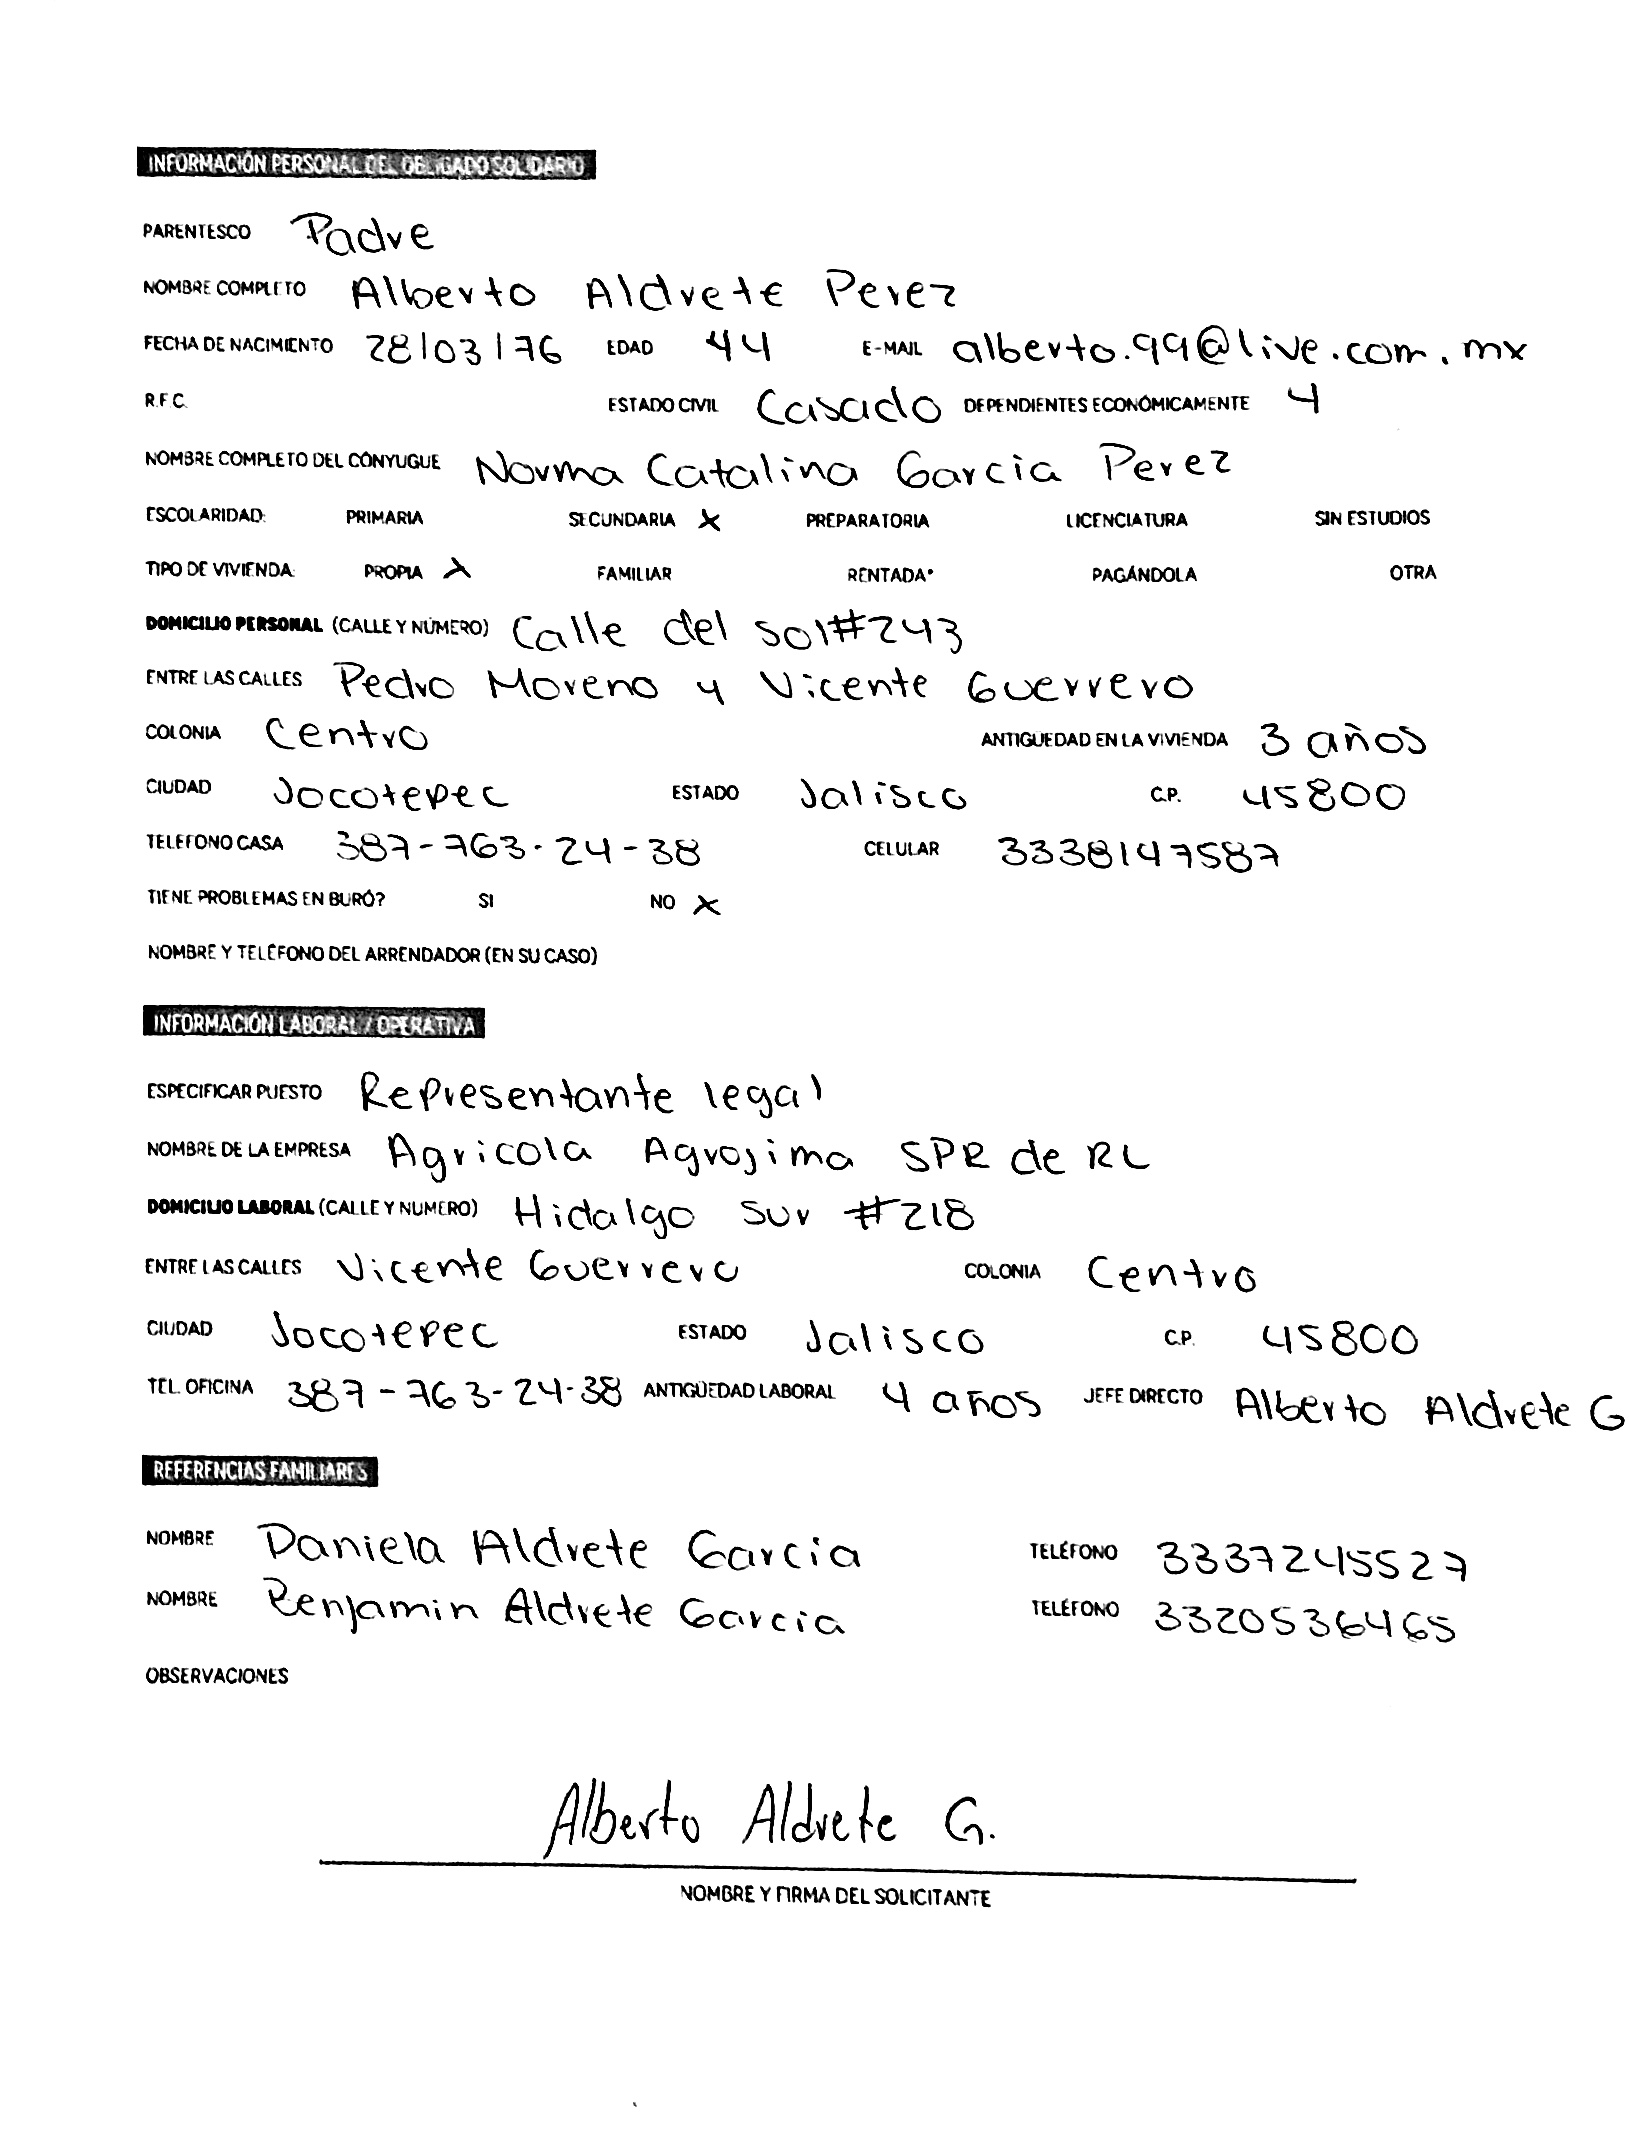 INFORMACIÓN PERSONAL DEL OBLIGADO SOLIDARIO
PARENTESCO Padre
NOMBRE COMPLETO Alberto Aldrete Perez
FECHA DE NACIMIENTO 28/03/76 EDAD 44 E-MAIL alberto.99@live.com.mx
R.F.C. ESTADO CIVIL Casado DEPENDIENTES ECONÓMICAMENTE 4
NOMBRE COMPLETO DEL CONYUGUE Norma Catalina Garcia Perez
ESCOLARIDAD: PRIMARIA SECUNDARIA X PREPARATORIA LICENCIATURA SIN ESTUDIOS
TIPO DE VIVIENDA: PROPIA X FAMILIAR RENTADA* PAGÁNDOLA OTRA
DOMICILIO PERSONAL (CALLE Y NÚMERO) Calle del sol #243
ENTRE LAS CALLES Pedro Moreno y Vicente Guerrero
COLONIA Centro ANTIGUEDAD EN LA VIVIENDA 3 años
CIUDAD Jocotepec ESTADO Jalisco C.P. 45800
TELEFONO CASA 387-763-24-38 CELULAR 3338147587
TIENE PROBLEMAS EN BURÓ? SI NO X
NOMBRE Y TELÉFONO DEL ARRENDADOR (EN SU CASO)
INFORMACIÓN LABORAL / OPERATIVA
ESPECIFICAR PUESTO Representante legal
NOMBRE DE LA EMPRESA Agricola Agrojima SPR de RL
DOMICILIO LABORAL (CALLE Y NUMERO) Hidalgo Sur #218
ENTRE LAS CALLES Vicente Guerrero COLONIA Centro
CIUDAD Jocotepec ESTADO Jalisco C.P. 45800
TEL. OFICINA 387-763-24-38 ANTIGÜEDAD LABORAL 4 años JEFE DIRECTO Alberto Aldrete G
REFERENCIAS FAMILIARES
NOMBRE Daniela Aldrete Garcia TELÉFONO 3337245527
NOMBRE Benjamin Aldrete Garcia TELÉFONO 3320536465
OBSERVACIONES
Alberto Aldrete G.
NOMBRE Y FIRMA DEL SOLICITANTE